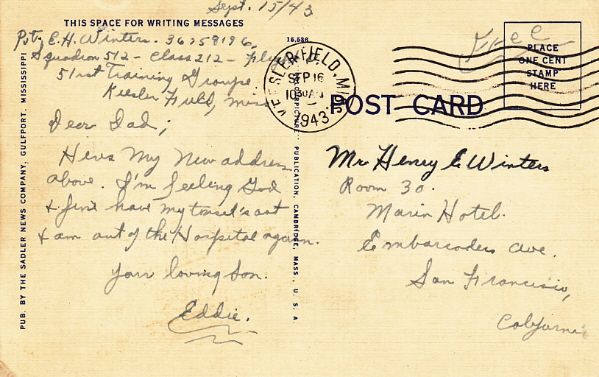 Sept. 15/43
THIS SPACE FOR WRITING MESSAGES
Pvt. E. H. Winters. 36758196,
Squadron 512 - Class 212 -
51st Training Groupe.
Kiesler Field, Miss
Dear Dad;
Heres My New address
above. I'm feeling God
& fine have my tonsel's out
& am out of the Hospital again.
Your loving Son.
Eddie.
PUB. BY THE SADLER NEWS COMPANY, GULFPORT, MISSISSIPPI
PUBLICATION, CAMBRIDGE, MASS., U.S.A.
KEESLER FIELD, MISS.
SEP 16
1943
Free
PLACE
ONE CENT
STAMP
HERE
POST CARD
Mr Henry E Winters
Room 30.
Marin Hotel.
Embarcadero ave.
San Francisio,
California